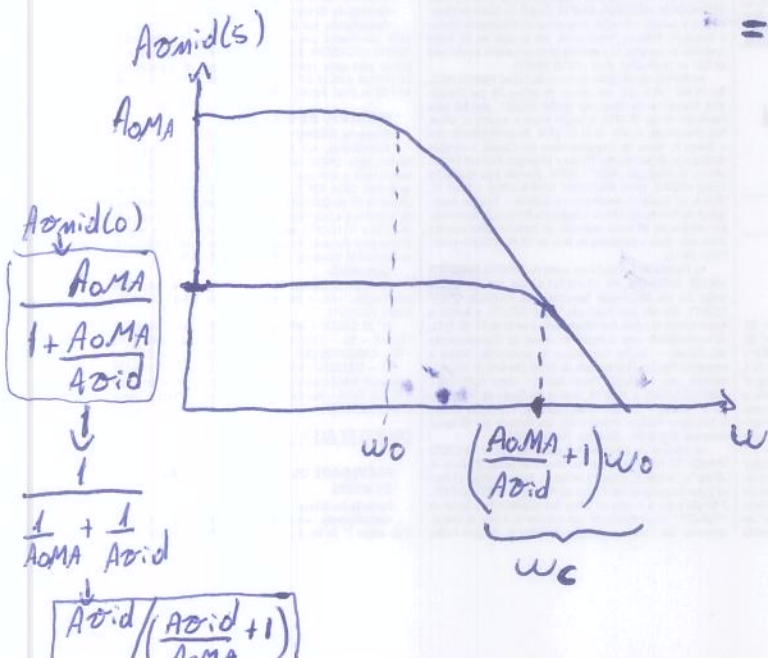 Avnid(s)
=
AoMA
Avnid(0)
AoMA
1 + AoMA
Avid
1
1/AoMA + 1/Avid
Avid/(Avid/AoMA + 1)
ωo
(AoMA/Avid + 1)ωo
ω
ωc